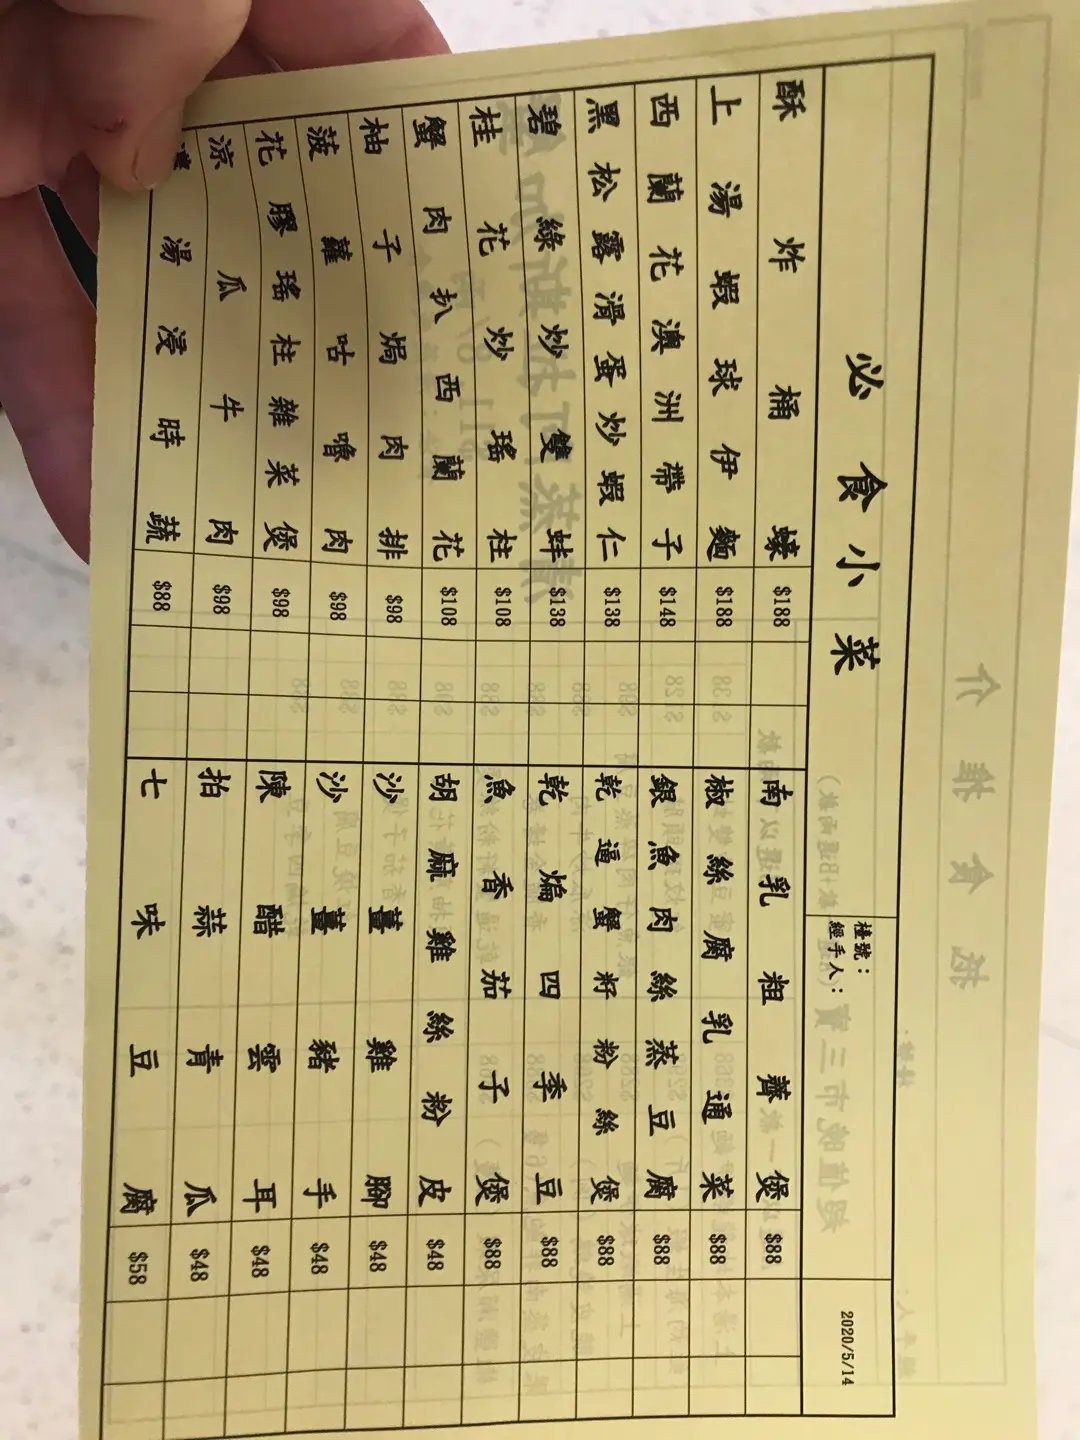 必食小菜
檯號：
經手人：
2020/5/14
酥炸桶蠔 $188
上湯蝦球伊麵 $188
西蘭花澳洲帶子 $148
黑松露滑蛋炒蝦仁 $138
碧綠炒雙蚌 $138
桂花炒瑤柱 $108
蟹肉扒西蘭花 $108
柚子焗肉排 $98
菠蘿咕嚕肉 $98
花膠瑤柱雜菜煲 $98
涼瓜牛肉 $98
湯浸時蔬 $88
南乳粗齋煲 $88
椒絲腐乳通菜 $88
銀魚肉絲蒸豆腐 $88
乾逼蟹籽粉絲煲 $88
乾煸四季豆 $88
魚香茄子煲 $88
胡麻雞絲粉皮 $48
沙薑雞腳 $48
沙薑豬手 $48
陳醋雲耳 $48
拍蒜青瓜 $48
七味豆腐 $58